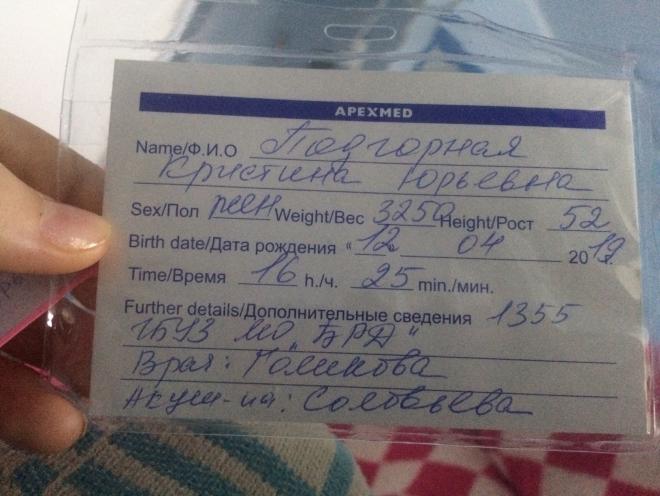 APEXMED
Name/Ф.И.О Подгорная
Кристина Юрьевна
Sex/Пол жен Weight/Вес 3250 Height/Рост 52
Birth date/Дата рождения "12 04 2019г.
Time/Время 16 h./ч. 25 min./мин.
Further details/Дополнительные сведения 1355
ГБУЗ МО "БРД"
Врач: Голикова
Акуш-ка: Соловьева